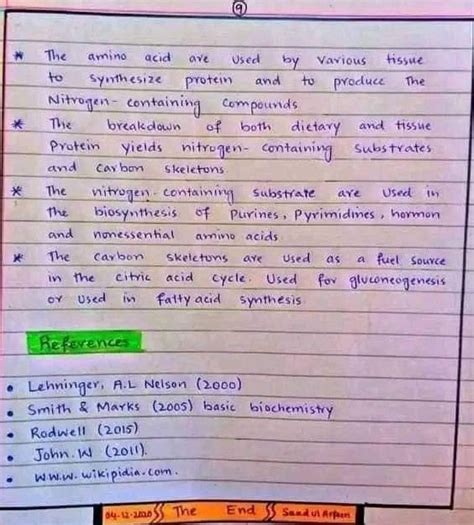 9
* The amino acid are used by various tissue
to synthesize protein and to produce The
Nitrogen-containing compounds
* The breakdown of both dietary and tissue
Protein yields nitrogen-containing substrates
and carbon skeletons
* The nitrogen-containing substrate are used in
the biosynthesis of purines, Pyrimidines, hormon
and nonessential amino acids.
* The carbon skeletons are used as a fuel source
in the citric acid cycle. Used for gluconeogenesis
or used in fatty acid synthesis.
References
• Lehninger, A.L Nelson (2000)
• Smith & Marks (2005) basic biochemistry
• Rodwell (2015)
• John.W (2011).
• www.wikipidia.com.
04-12-2020 The End Saad ul Arfeen